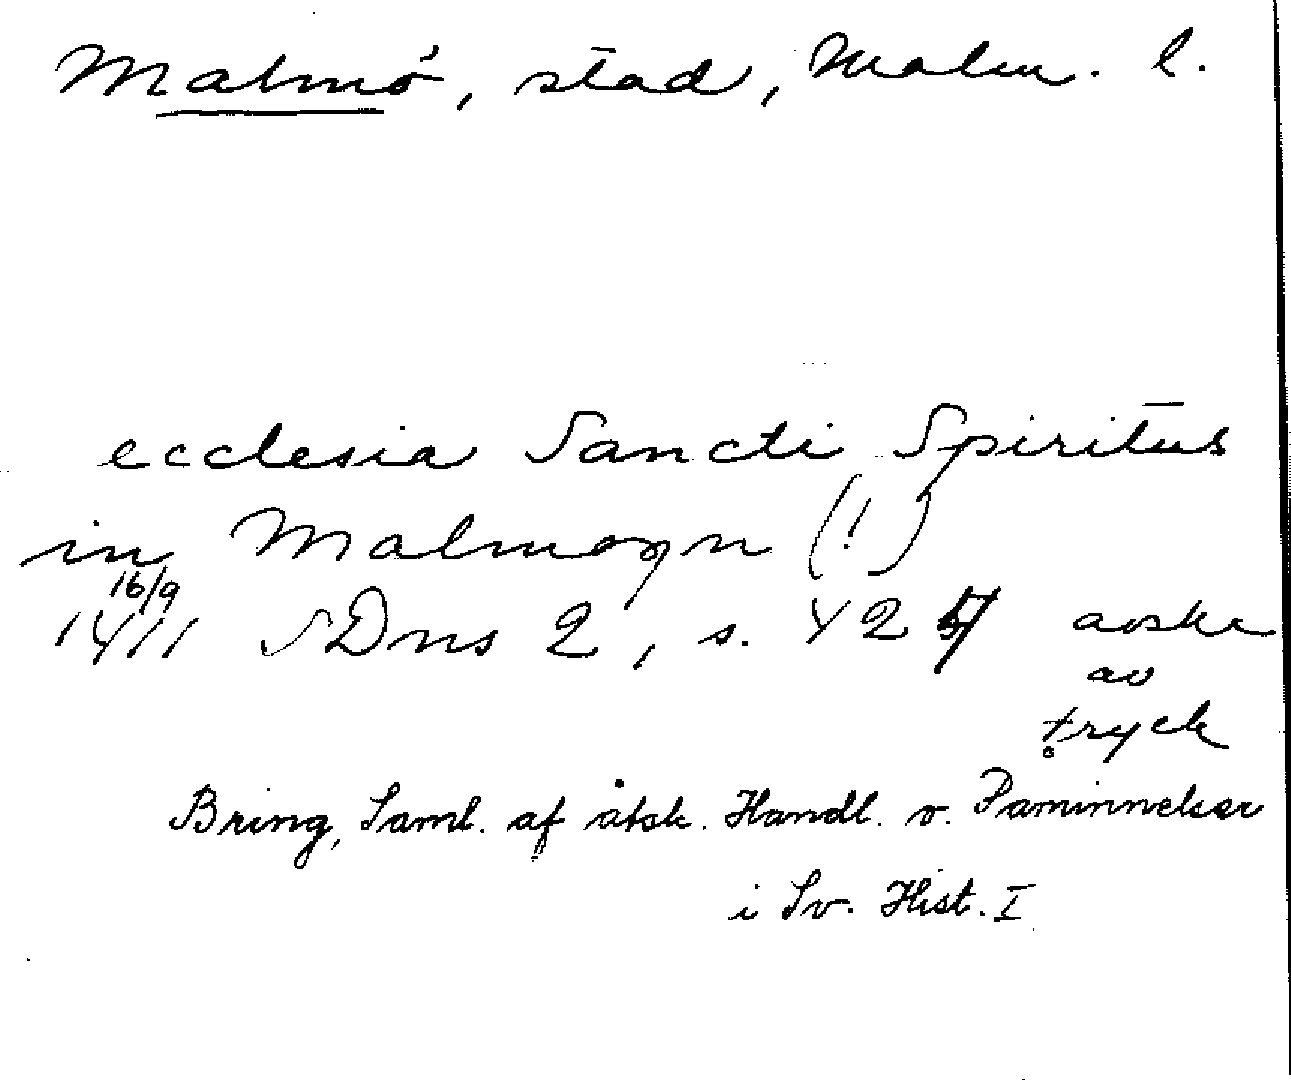 Malmö, stad, Malm. l.
ecclesia Sancti Spiritus
in Malmoyn (!)
16/9
1411 SDns 2, s. 427 avskr
av
tryck
Bring, Saml. af åtsk. Handl. o. Påminnelser
i Sv. Hist. I